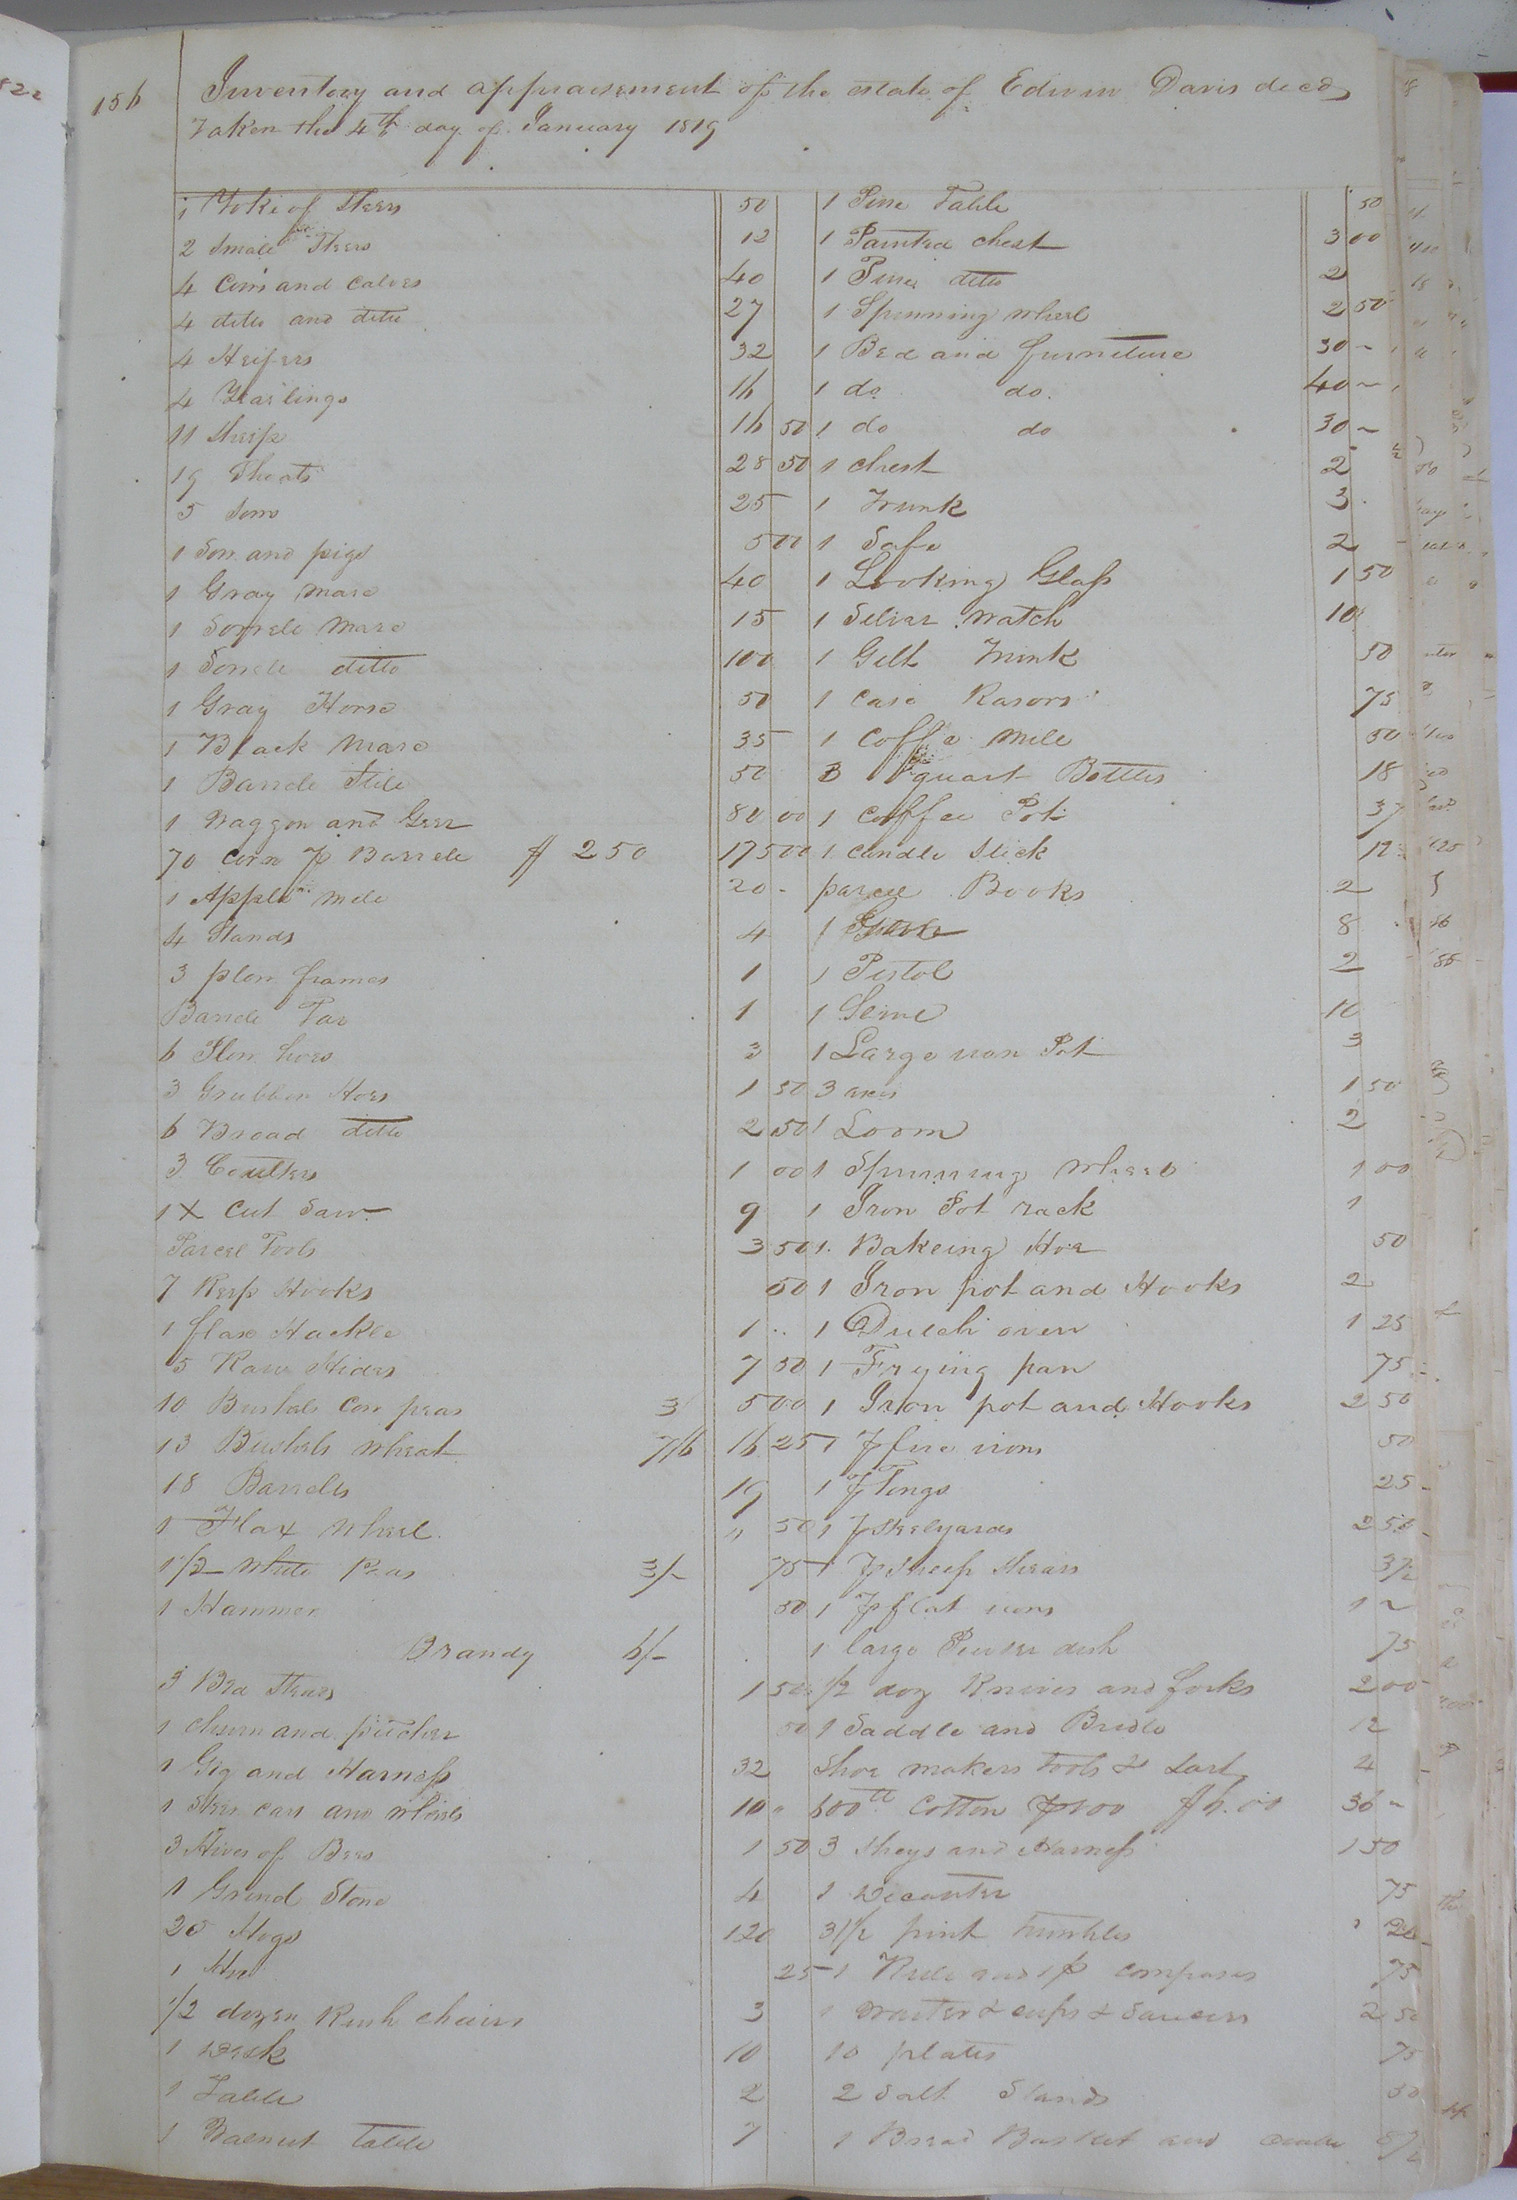 156
Inventory and appraisement of the estate of Edwin Davis decd
Taken the 4th day of January 1819
1 Yoke of Steers 50
2 Small Steers 12
4 Cows and Calves 40
4 ditto and ditto 27
4 Heifers 32
4 Yearlings 16
11 Sheep 16 50
19 Shoats 28 50
5 Sows 25
1 Sow and pigs 5 00
1 Gray Mare 40
1 Sorrele Mare 15
1 Sorrele ditto 100
1 Gray Horse 50
1 Black Mare 35
1 Barrele Stile 50
1 Waggon and Geer 80 00
70 Corn p Barrele $ 2 50 175 00
1 Apple Mile 20
4 Stands 4
3 plow frames 1
Barrele Tar 1
6 Plow hoes 3
3 Grubben Hoes 1 50
6 Broad ditto 2 50
3 Coulters 1 00
1 X Cut Saw 9
Parcel Tools 3 50
7 Reap Hooks 50
1 flax Hackle 1
5 Raw Hides 7 50
10 Bushels Cow peas 3/ 5 00
13 Bushels Wheat 7/6 16 25
18 Barreles 19
1 Flax Wheel " 50
1 1/2 White Peas 3/- 75
1 Hammer 50
Brandy 6/-
3 Bed Steads 1 50
1 churn and pitcher 50
1 Gig and Harness 32
1 Steer cart and Wheels 10 "
3 Hives of Bees 1 50
1 Grind Stone 4
20 Hogs 120
1 25
1/2 dozen Rush chairs 3
1 Desk 10
1 Table 2
1 Walnut table 7
1 Pine Table 50
1 Painted chest 3 00
1 Pine ditto 2
1 Spinning wheel 2 50
1 Bed and furniture 30 ~
1 do do 40 ~
1 do do 30 ~
1 chest 2
1 Trunk 3
1 Safe 2
1 Looking Glass 1 50
1 Silver Watch 10
1 Gilt Trunk 50
1 Case Rasors 75
1 Coffe Mile 50
3 quart Bottles 18
1 Coffee Pot 37
1 Candle Stick 12
parcel Books 2
1 8
1 Pistol 2
1 Seine 10
1 Large iron Pot 3
3 axes 1 50
1 Loom 2
1 Spinning Wheel 1 00
1 Iron Pot rack 1
1 Bakeing Hoe 50
1 Iron pot and Hooks 2
1 Dutch oven 1 25
1 Frying pan 75
1 Iron pot and Hooks 2 50
1 p fire irons 50
1 p Tongs 25
1 p Steelyards 2 50
1 p Sheep Shears 37 1/2
1 p flat irons 1 ~
1 large Pewter dish 75
1/2 doz Knives and forks 2 00
1 Saddle and Bridle 12
Shoe makers tools & Last 4
600 lb Cotton p 100 $ 6.00 36 ~
3 Sleys and Harness 1 50
1 Decanter 75
3 1/2 pint tumbles 20
1 Rule and 1 p Compases 75
1 Waiter & cups & Saucers 2 50
10 plates 75
2 Salt Stands 50
1 Bread Basket and